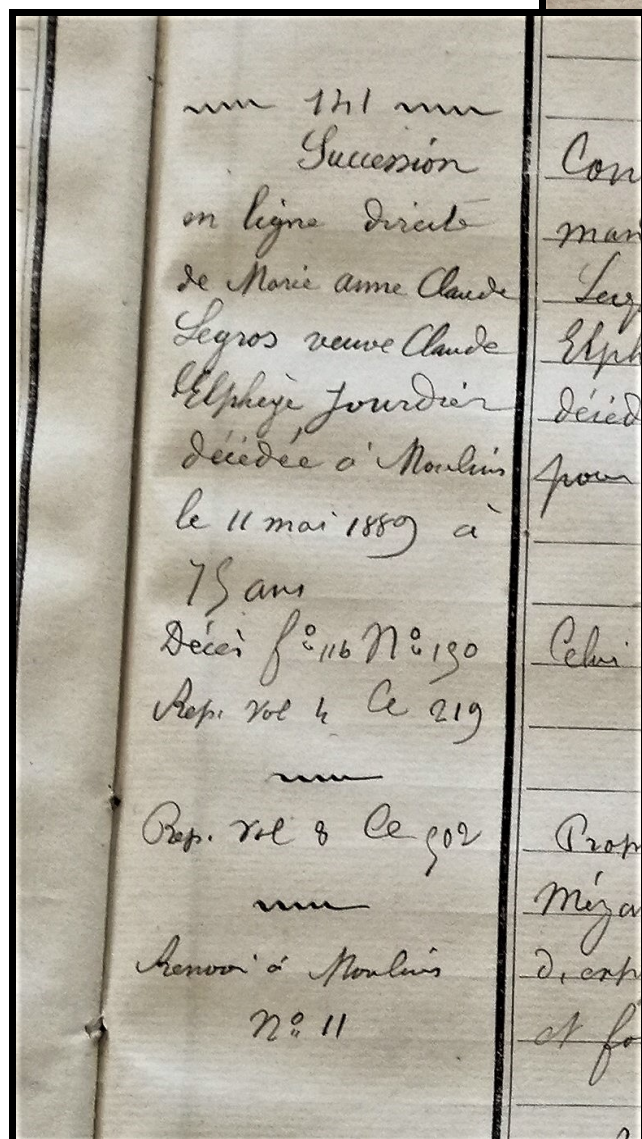 141
Succession
en ligne directe
de Marie anne Claude
Legros veuve Claude
Elphège Jourdier
décédée à Moulins
le 11 mai 1889 à
75 ans
Décès f° 116 N° 190
Rep. vol 4 Ce 219
Rep. vol 8 Ce 902
Renvoi à Moulins
N° 11
Con
man
Leg
Elph
décéd
pour
Celui
Prop
Méza
d, exp
et fo